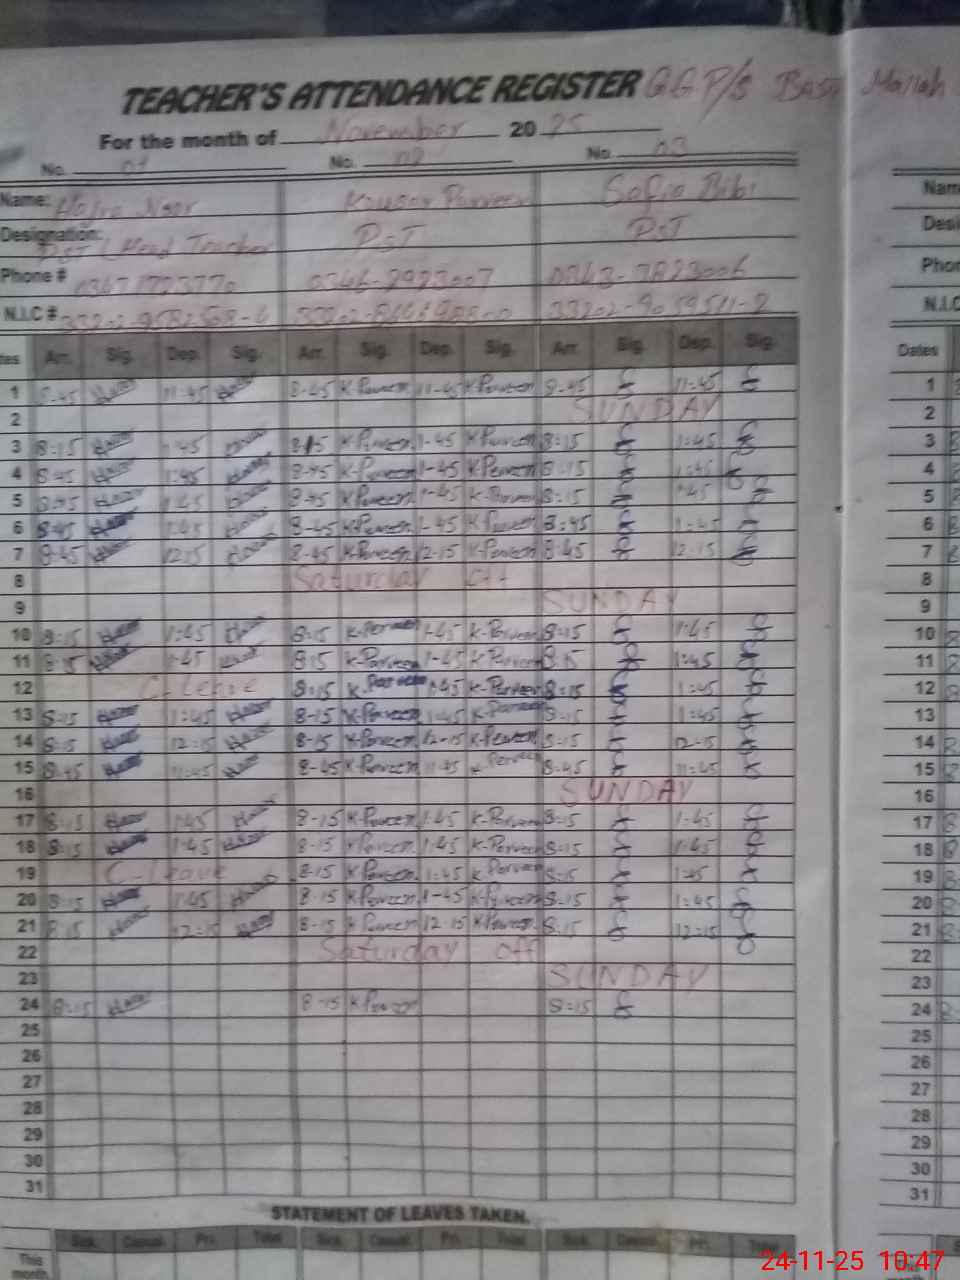 TEACHER'S ATTENDANCE REGISTER G.G.P/S Basti Mallah
For the month of November 2025
No. 01 No. 02 No. 03
Name: Hajra Noor Kousar Parveen Sofia Bibi
Designation: PST / Head Teacher PST PST
Phone # 0346-2923007 0343-7823006
N.I.C # 33202-9059511-2
Dates Arr. Sig. Dep. Sig. Arr. Sig. Dep. Sig. Arr. Sig. Dep. Sig.
1 8-45 11:45 8-45 K-Parveen 11-45 K-Parveen 8-45 11:45
2 SUNDAY
3 8:15 1:45 8-15 K-Parveen 1-45 K-Parveen 8:15 1:45
4 8:45 1:45 8-45 K-Parveen 1-45 K-Parveen 8:15 1:45
5 8:45 1:45 8-45 K-Parveen 1-45 K-Parveen 8:15 1:45
6 8:45 1:45 8-45 K-Parveen 1-45 K-Parveen 8:45 1:45
7 8-45 12:15 8-45 K-Parveen 12-15 K-Parveen 8-45 12:15
8 Saturday off
9 SUNDAY
10 8:15 1:45 8:15 K-Parveen 1-45 K-Parveen 8:15 1:45
11 8:15 1-45 8:15 K-Parveen 1-45 K-Parveen 8:15 1:45
12 C-Leave 8:15 K-Parveen 1:45 K-Parveen 8:15 1:45
13 8:15 1:45 8-15 K-Parveen 1:45 K-Parveen 8:15 1:45
14 8:15 12:15 8-15 K-Parveen 12-15 K-Parveen 8:15 12-15
15 8:45 11:45 8-45 K-Parveen 11-45 K-Parveen 8-45 11:45
16 SUNDAY
17 8:15 1:45 8-15 K-Parveen 1:45 K-Parveen 8:15 1:45
18 8:15 1:45 8-15 K-Parveen 1:45 K-Parveen 8:15 1:45
19 C-Leave 8-15 K-Parveen 1:45 K-Parveen 8:15 1:45
20 8:15 1:45 8-15 K-Parveen 1-45 K-Parveen 8:15 1:45
21 8:15 12:15 8-15 K-Parveen 12-15 K-Parveen 8:15 12:15
22 Saturday off
23 SUNDAY
24 8:15 8-15 K-Parveen 8:15
25
26
27
28
29
30
31
STATEMENT OF LEAVES TAKEN.
Sick. Casual. Pri. Total Sick. Casual. Pri. Total Sick. Casual. Pri. Total
This month
Name
Desi
Phon
N.I.C
Dates
1
2
3
4
5
6
7
8
9
10
11
12
13
14
15
16
17
18
19
20
21
22
23
24
25
26
27
28
29
30
31
24-11-25 10:47